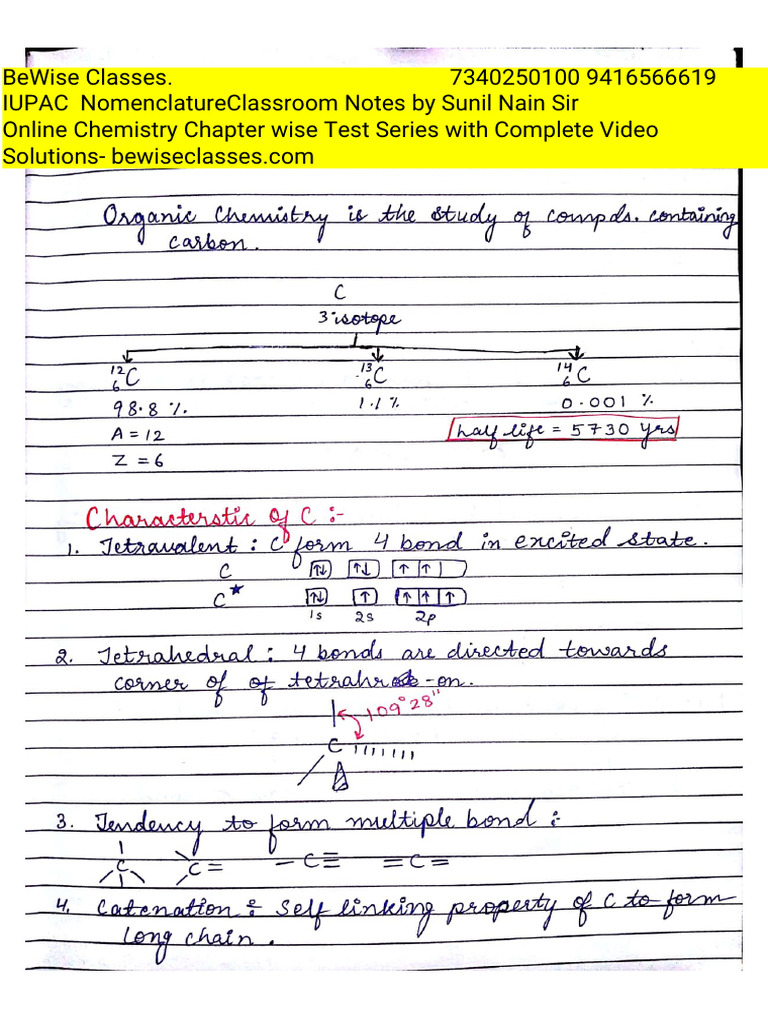 BeWise Classes. 7340250100 9416566619
IUPAC NomenclatureClassroom Notes by Sunil Nain Sir
Online Chemistry Chapter wise Test Series with Complete Video
Solutions- bewiseclasses.com
Organic Chemistry is the study of compds. containing
carbon.
C
3 isotope
¹²₆C ¹³₆C ¹⁴₆C
98.8 %. 1.1 % 0.001 %
A = 12 half life = 5730 yrs
Z = 6
Characterstic of C :-
1. Tetravalent : C form 4 bond in excited state.
C ↑↓ ↑↓ ↑ ↑
C* ↑↓ ↑ ↑ ↑ ↑
1s 2s 2p
2. Tetrahedral : 4 bonds are directed towards
corner of of -on.
109°28"
C
3. Tendency to form multiple bond :
C C= -C≡ =C=
4. Catenation : Self linking property of C to form
long chain.